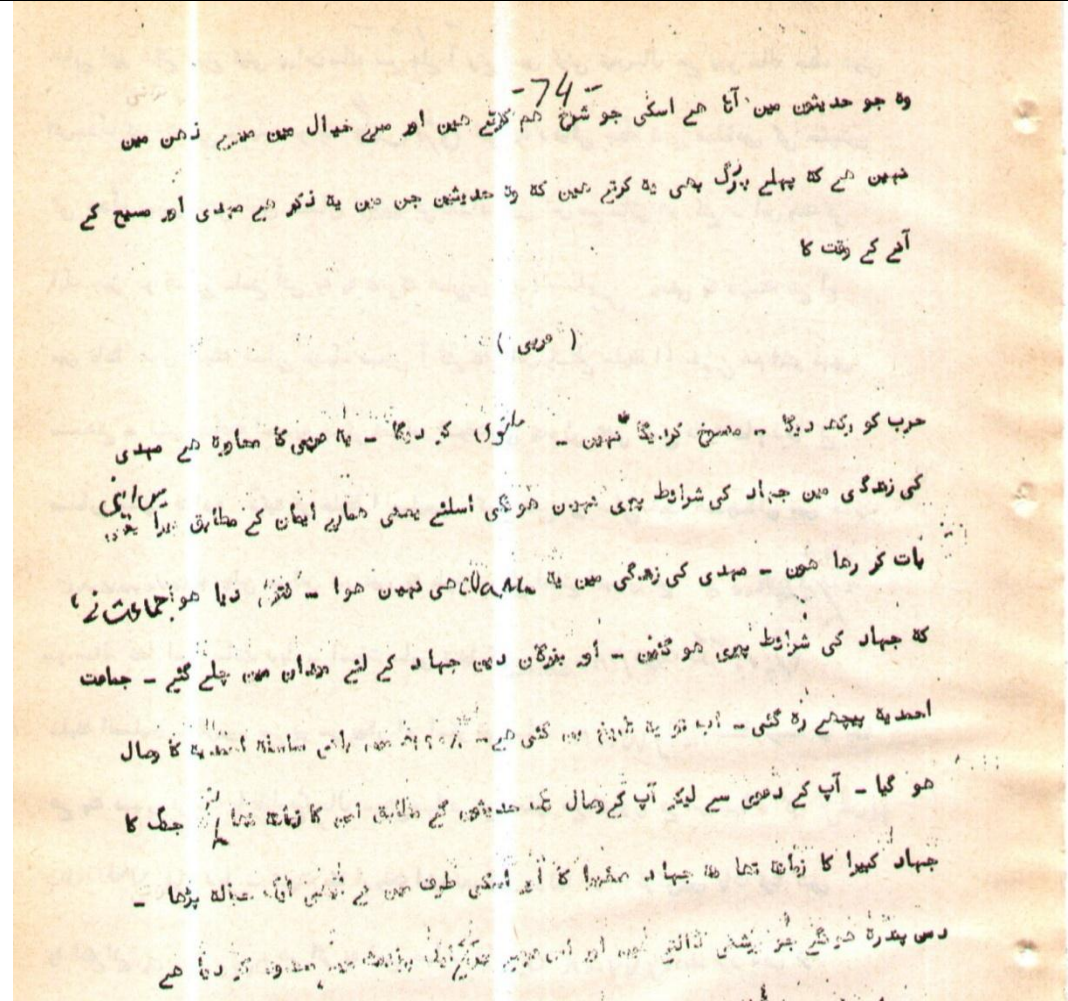 -74-
وہ جو حدیثوں میں آتا ہے اسکی جو شرح ہم کرتے ہیں اور میرے خیال میں میرے ذہن میں
نہیں ہے کہ پہلے بزرگ بھی یہ کرتے ہیں کہ وہ حدیثیں جن میں یہ ذکر ہے مہدی اور مسیح کے
آنے کے وقت کا
( عربی )
حرب کو رکھ دیگا - منسوخ کردیگا نہیں - ملتوی کر دیگا - یہ عربی کا محاورہ ہے مہدی
کی زندگی میں جہاد کی شرائط پوری نہیں ہونگی اسلئے یعنی ہمارے ایمان کے مطابق میں اپنی
بات کر رہا ہوں - مہدی کی زندگی میں یہ ہی نہیں ہوا - دیا ہو جماعت نے
کہ جہاد کی شرائط پوری ہو گئیں - اور بزرگان دین جہاد کے لئے میدان میں چلے گئے - جماعت
احمدیہ پیچھے رہ گئی - اب تو یہ تاریخ بن گئی ہے - میں بانی سلسلہ احمدیہ کا وصال
ہو گیا - آپ کے دعوی سے لیکر آپ کے وصال تک حدیثوں کے مطابق امن کا زمانہ تھا جنگ کا
جہاد کبیرا کا زمانہ تھا نہ جہاد صغیرا کا اور اسکی طرف میں نے ایک حوالہ پڑھا -
دس پندرہ ہونگے جو روشنی ڈالتے ہیں اور کر دیا ہے